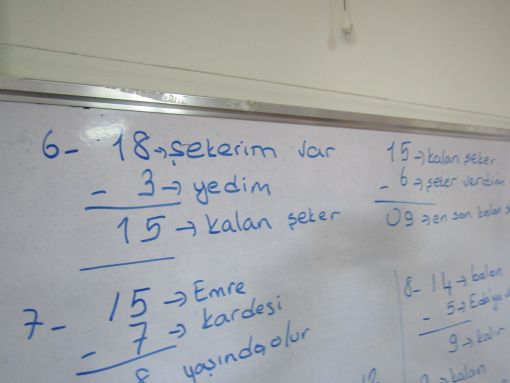 6- 18 → şekerim var
- 3 → yedim
15 → kalan şeker
15 → kalan şeker
- 6 → şeker verdim
09 → en son kalan
7- 15 → Emre
- 7 → kardesi
8 yaşında olur
8- 14 → balon
- 5 →
9 →
kalan